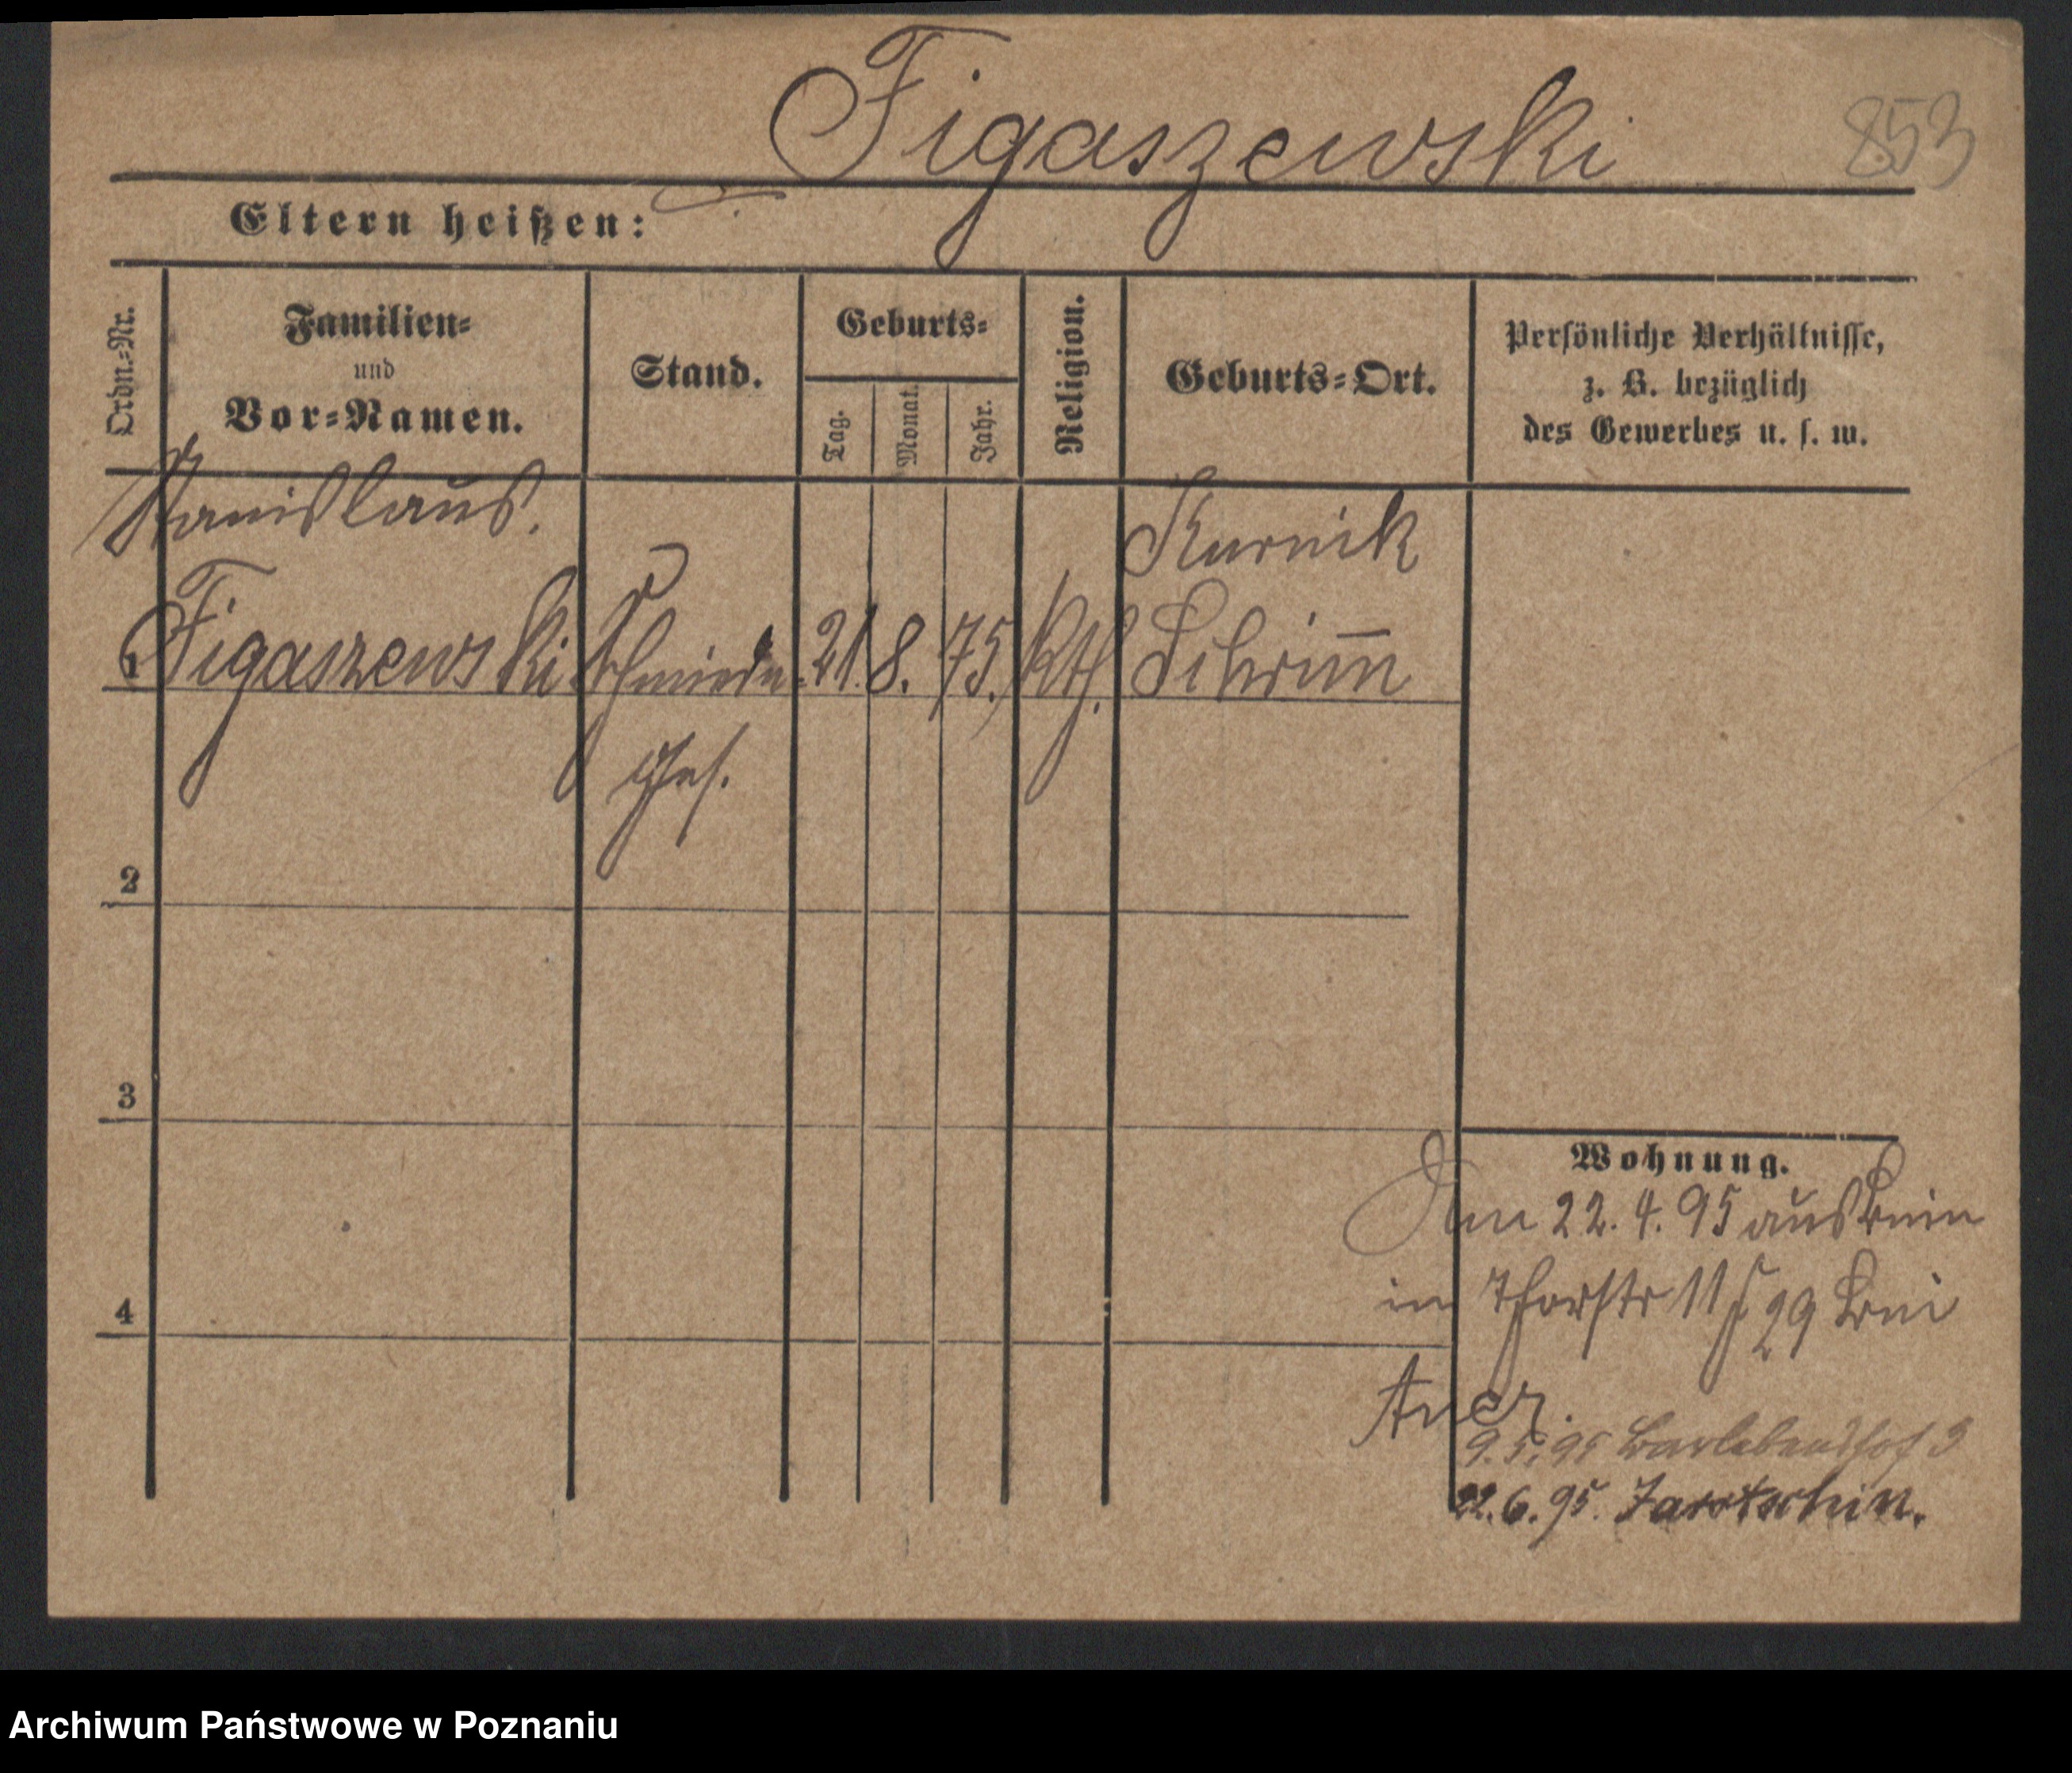 Figaszewski
853
Eltern heißen:
Ordn.-Nr.
Familien-
und
Vor-Namen.
Stand.
Geburts-
Tag.
Monat.
Jahr.
Religion.
Geburts-Ort.
Persönliche Verhältnisse,
z. B. bezüglich
des Gewerbes u. s. w.
Stanislaus.
Kurnik
1 Figaszewski Schmiede- 21. 8. 75. kth. Schrimm
Ges.
2
3
4
Wohnung.
22. 4. 95 aus Bnin
in Thorstr 11 29 bei
9.5.95 Barlebenshof 3
22.6.95. Jarotschin.
Archiwum Państwowe w Poznaniu